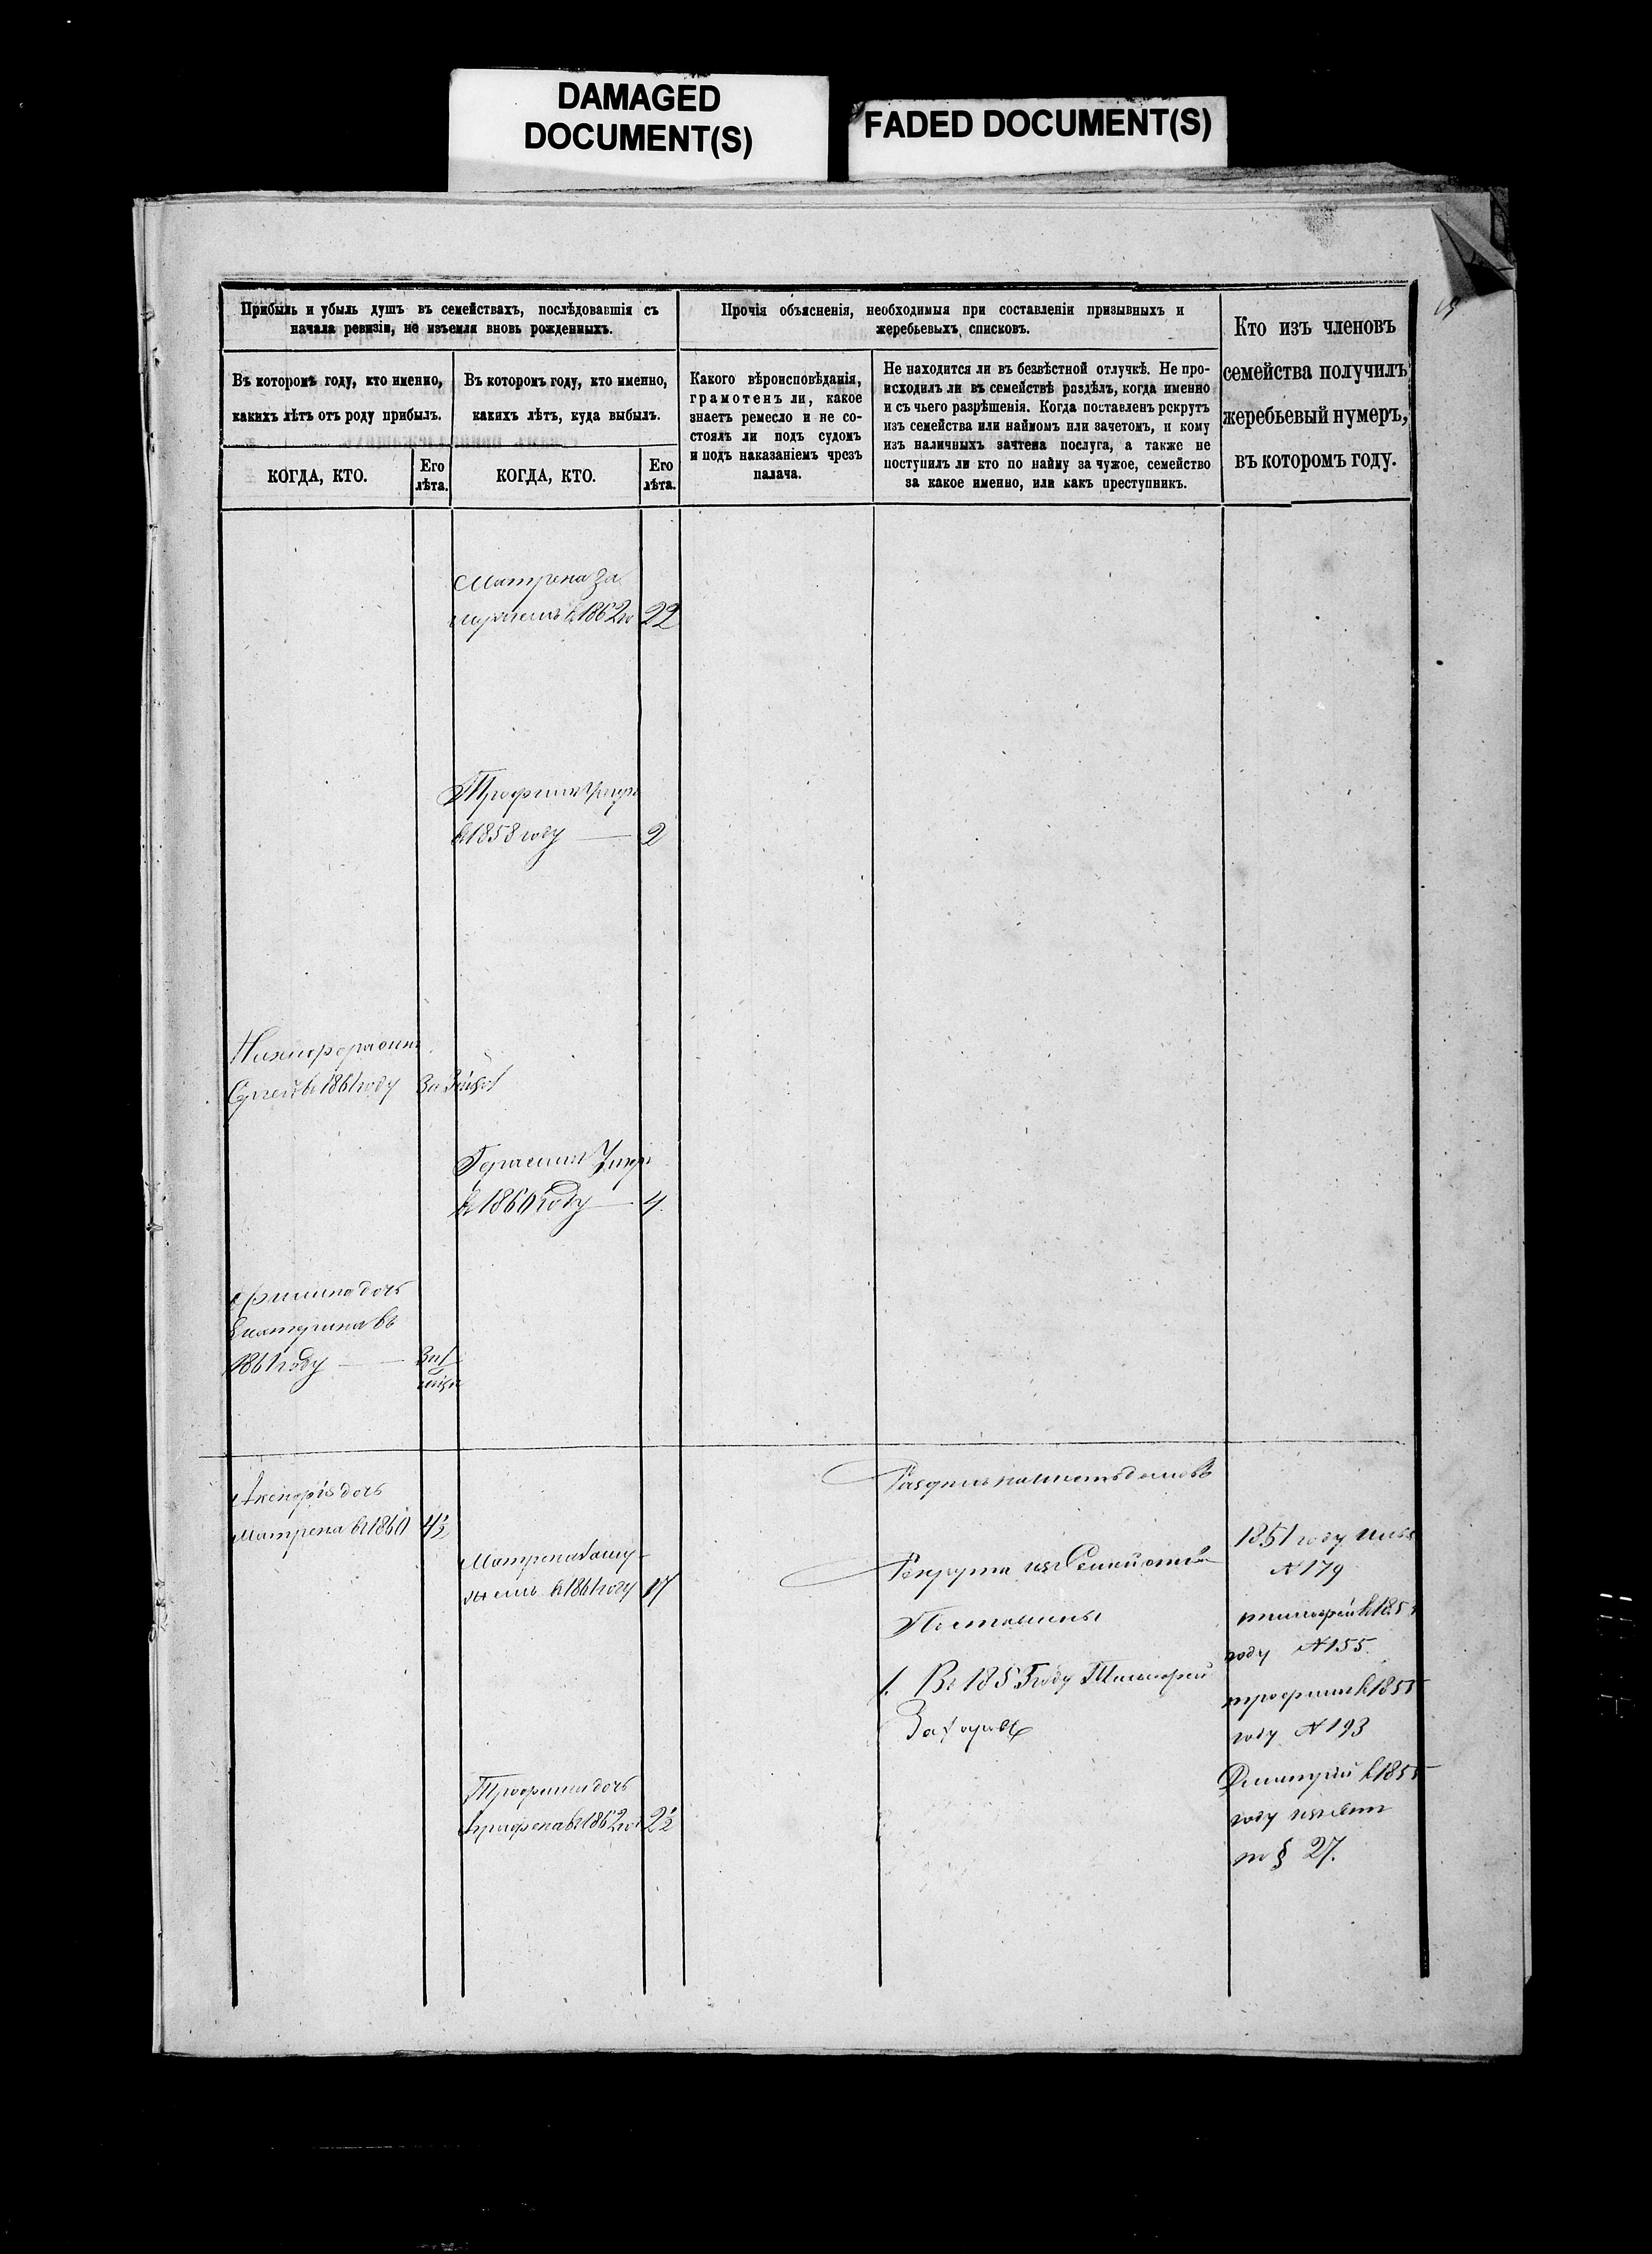 DAMAGED
DOCUMENT(S)
FADED DOCUMENT(S)
Прибыль и убыль душъ въ семействахъ, послѣдовавшія съ
начала ревизіи, не изъемля вновь рожденныхъ.
Прочія объясненія, необходимыя при составленіи призывныхъ и
жеребьевыхъ списковъ.
Кто изъ членовъ
семейства получилъ
жеребьевый нумеръ,
въ которомъ году.
Въ которомъ году, кто именно,
какихъ лѣтъ отъ роду прибылъ.
Въ которомъ году, кто именно,
какихъ лѣтъ, куда выбылъ.
Какого вѣроисповѣданія,
грамотенъ ли, какое
знаетъ ремесло и не со-
стоялъ ли подъ судомъ
и подъ наказаніемъ чрезъ
палача.
Не находится ли въ безвѣстной отлучкѣ. Не про-
исходилъ ли въ семействѣ раздѣлъ, когда именно
и съ чьего разрѣшенія. Когда поставленъ рекрутъ
изъ семейства или наймомъ или зачетомъ, и кому
изъ наличныхъ зачтена послуга, а также не
поступилъ ли кто по найму за чужое, семейство
за какое именно, или какъ преступникъ.
КОГДА, КТО.
Его
лѣта.
КОГДА, КТО.
Его
лѣта.
Матрена за
мужемъ в 1862 го 22
Трофим Умеръ
в 1858 году 2
Сергей в 1861 году
Герасимъ Умер
в 1860 году 4
дочь
Екатерина въ
1861 году
дочь
Матрена в 1860 4½
Матрена заму-
жемъ в 1861 году 17
Трофима дочь
Аграфена в 1862 го 2½
Рекрута изъ Семейства
Поставлены
1. Въ 1853 году Тимофей
Захаровъ
1851 году
№ 179
тимофей в 185
году № 155
трофим в 1855
году № 193
Дмитрий в 1855
году
по § 27.